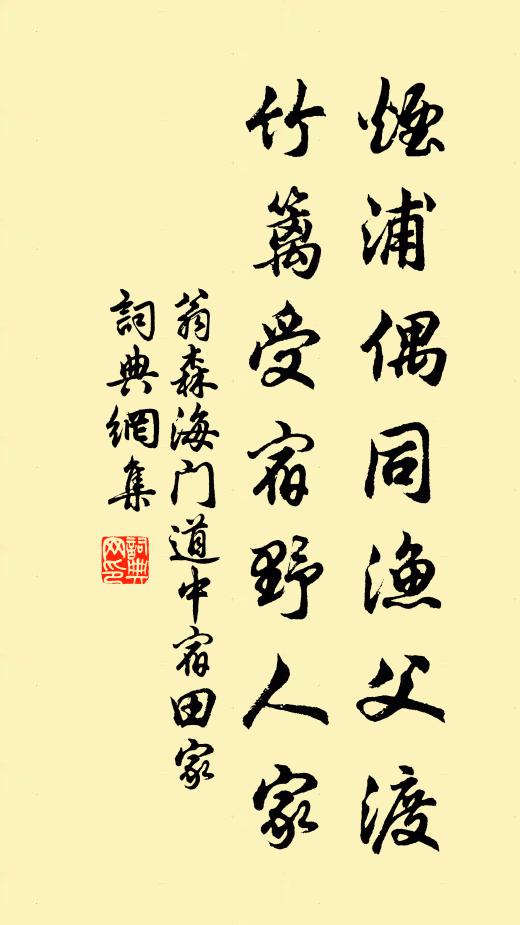 煙浦偶同漁父渡
竹篱受宿野人家
翁森海门道中宿田家
詞典網集
詞典网印